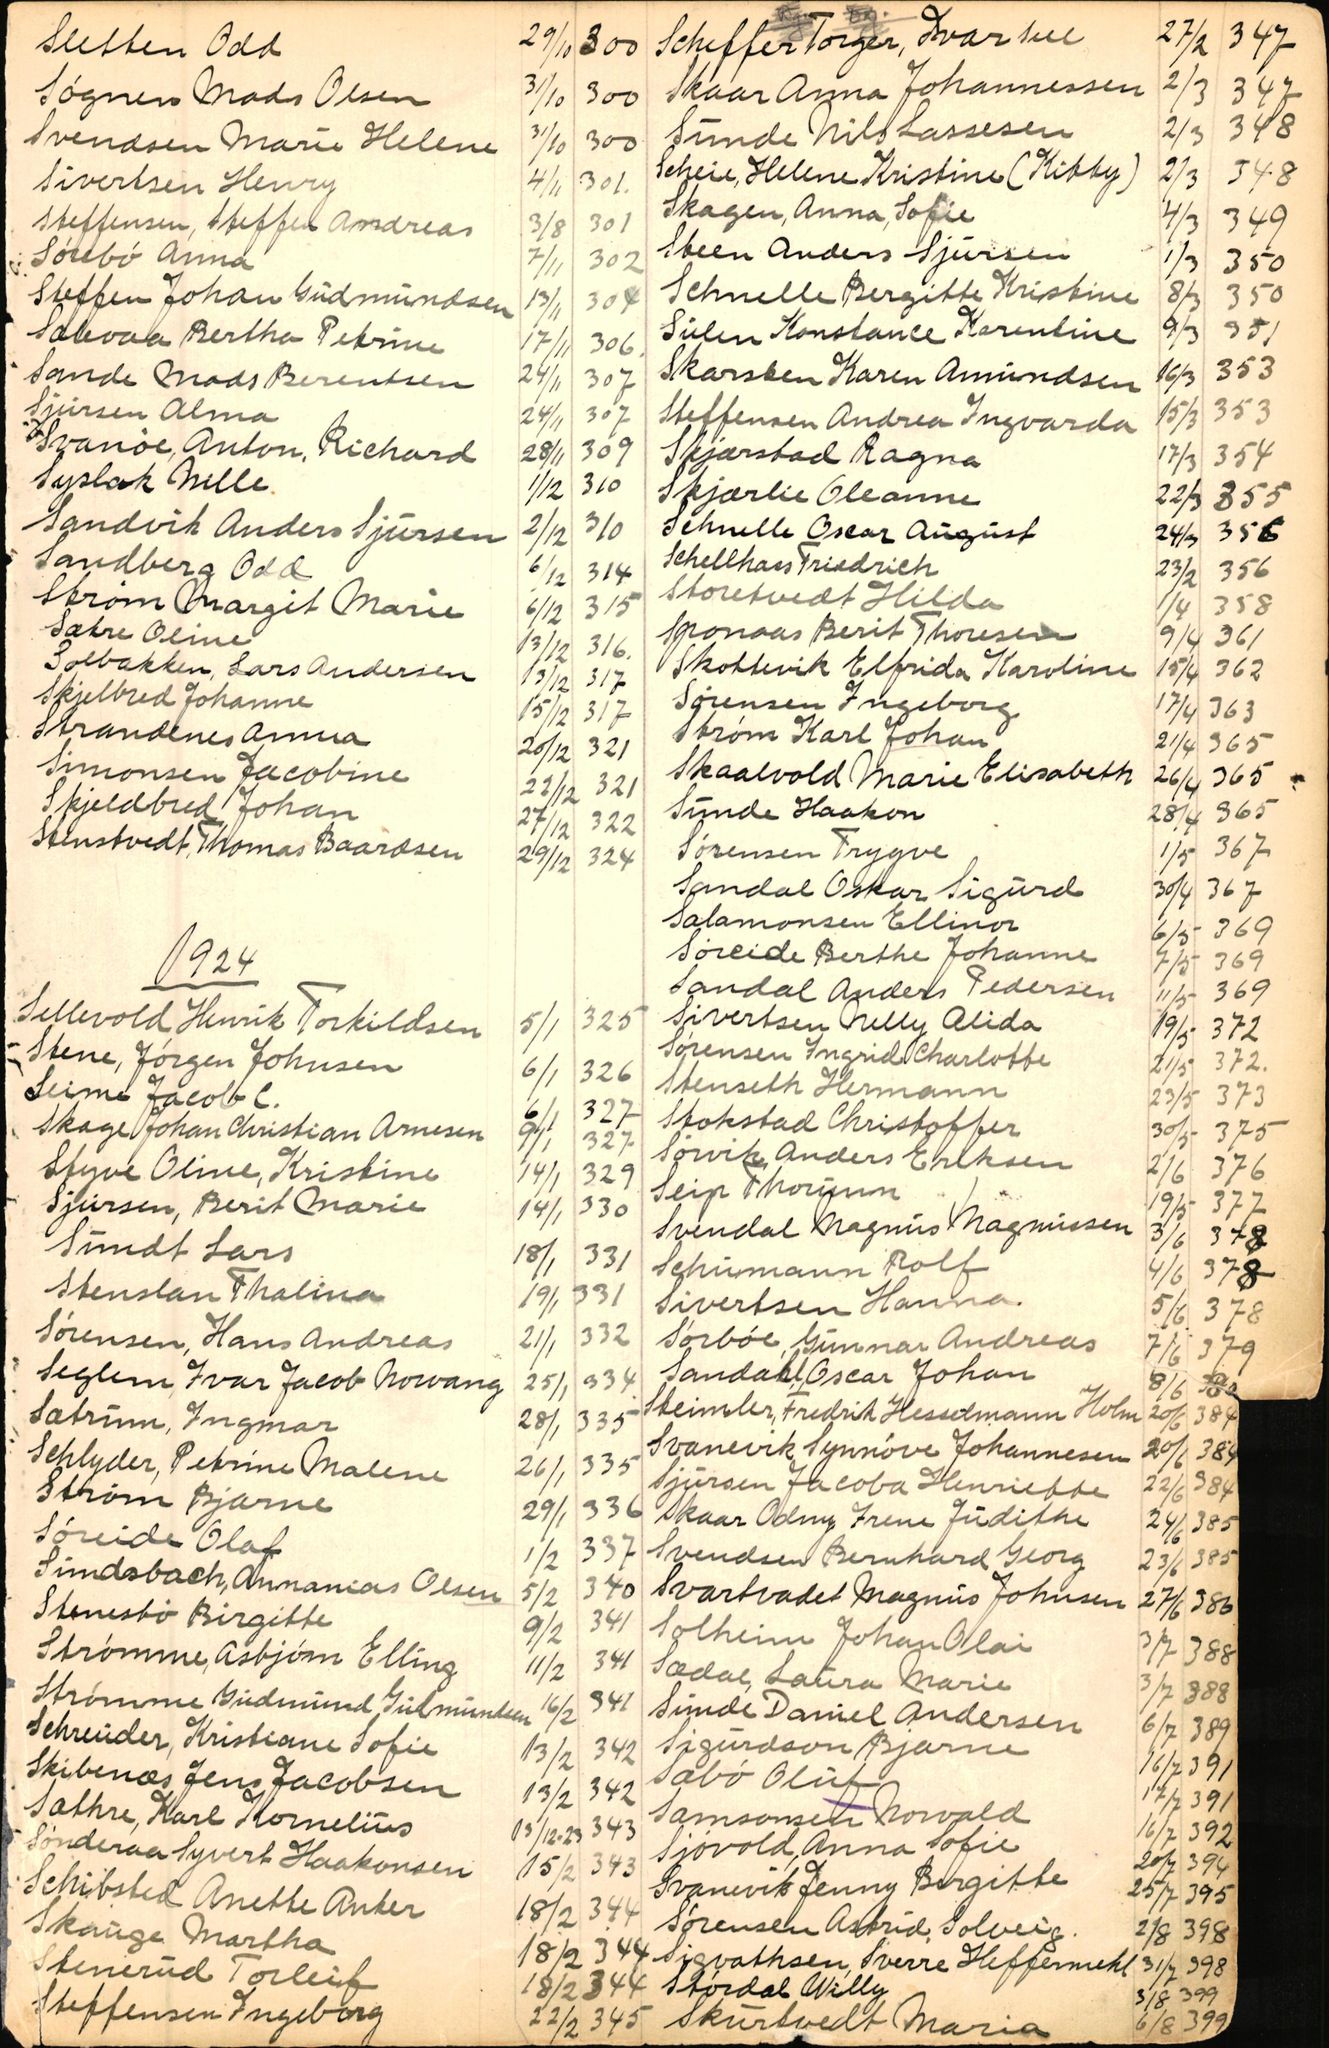 Sletten Odd 29/10 300
Sógnen Mads Olsen 31/10 300
Svendsen Marie Helene 31/10 300
Sivertsen Henry 4/11 301.
Steffensen, Steffen Andreas 3/8 301
Sörebö Anna 7/11 302
Steffen Johan Gudmundsen 13/11 304
Salevaa Bertha Petrine 17/11 306.
Sande Mads Berentsen 24/11 307
Sjursen Alma 24/11 307
Svanöe, Anton, Richard 28/11 309
Syslak Nille 1/12 310
Sandvik Anders Sjursen 2/12 310
Sandberg Odd 6/12 314
Strøm Margit Marie 6/12 315
Sætre Oline 13/12 316.
Solbakken, Lars Andersen 13/12 317
Skjelbred Johanne 15/12 317
Strandenes Anna 20/12 321
Simonsen Jacobine 22/12 321
Skjeldbred Johan 27/12 322
Stenstvedt, Thomas Baardsen 29/12 324
1924
Sellevold Henrik Torkildsen 5/1 325
Stene, Jörgen Johnsen 6/1 326
Seim Jacob C. 6/1 327
Skage Johan Christian Arnesen 9/1 327
Styve Oline, Kristine 14/1 329
Sjursen, Berit Marie 14/1 330
Sundt Lars 18/1 331
Stenslan Thalina 19/1 331
Sörensen, Hans Andreas 21/1 332
Seglem, Ivar Jacob Norvang 25/1 334
Satrum, Ingmar 28/1 335
Schlyder, Petrine Malene 26/1 335
Strøm Bjarne 29/1 336
Söreide Olaf 1/2 337
Sundsbach, Annanias Olsen 5/2 340
Stenesbö Birgitte 9/2 341
Strömme, Asbjörn Elling 11/2 341
Strömme Gudmund Gudmundsen 16/2 341
Schreuder, Kristiane Sofie 13/2 342
Skibenæs Jens Jacobsen 13/2 342
Sæthre, Karl Kornelius 13/12-23 343
Sönderaa Syvert Haakonsen 15/2 343
Schibsted Anette Anker 18/2 344
Skauge Martha 18/2 344
Stenerud Torleif 18/2 344
Steffensen Ingeborg 22/2 345
Scheffer Torger, Ivar 27/2 347
Skaar Anna Johannessen 2/3 347
Sunde Nils Lassesen 2/3 348
Scheie, Helene Kristine (Kitty) 2/3 348
Skagen, Anna, Sofie 4/3 349
Steen Anders Sjursen 1/3 350
Schnelle Bergitte Kristine 8/3 350
Sulen Konstance Karentine 9/3 351
Skarsten Karen Amundsen 16/3 353
Steffensen Andrea Ingvarda 15/3 353
Skjærstad Ragna 17/3 354
Skjærlie Oleanne 22/3 355
Schnelle Oscar August 24/3 356
Schellhass Friedrich 23/2 356
Storetvedt Hilda 1/4 358
Sponaas Berit Thoresen 9/4 361
Skottevik Elfrida Karoline 15/4 362
Sørensen Ingeborg 17/4 363
Strøm Karl Johan 21/4 365
Skaalvold Marie Elisabeth 26/4 365
Sunde Haakon 28/4 365
Sørensen Trygve 1/5 367
Sandal Oskar Sigurd 30/4 367
Salamonsen Ellinor 6/5 369
Söreide Berthe Johanne 7/5 369
Sandal Anders Pedersen 11/5 369
Sivertsen Nelly Alida 19/5 372
Sørensen Ingrid Charlotte 21/5 372.
Stenseth Hermann 23/5 373
Stokstad Christoffer 30/5 375
Sörvik, Anders Eriksen 2/6 376
Seip Thorunn 19/5 377
Svendal Magnus Magnussen 3/6 378
Schumann Rolf 4/6 378
Sivertsen Hanna. 5/6 378
Sörböe, Gunnar Andreas 7/6 379
Sandahl, Oscar Johan 8/6 380
Steimler, Fredrik Hesselmann Holm 20/6 384
Svanevik Synnöve Johannesen 20/6 384
Sjursen Jacoba Henriette 22/6 384
Skaar Odny Irene Judithe 24/6 385
Svendsen Bernhard Georg 23/6 385
Svartvadet Magnus Johnsen 27/6 386
Solheim Johan Olai 3/7 388
Sædal, Laura Marie 3/7 388
Sunde Daniel Andersen 6/7 389
Sigurdson Bjarne 16/7 391
Sæbö Oluf 17/7 391
Samsonsen Norvald 16/7 392
Sjövold, Anna Sofie 20/7 394
Svanevik Jenny Birgitte 25/7 395
Sørensen Astrid, Solveig. 2/8 398
Sigvathsen, Sverre Heffermehl 31/7 398
Stördal Willy 3/8 399
Skurtvedt Maria 6/8 399